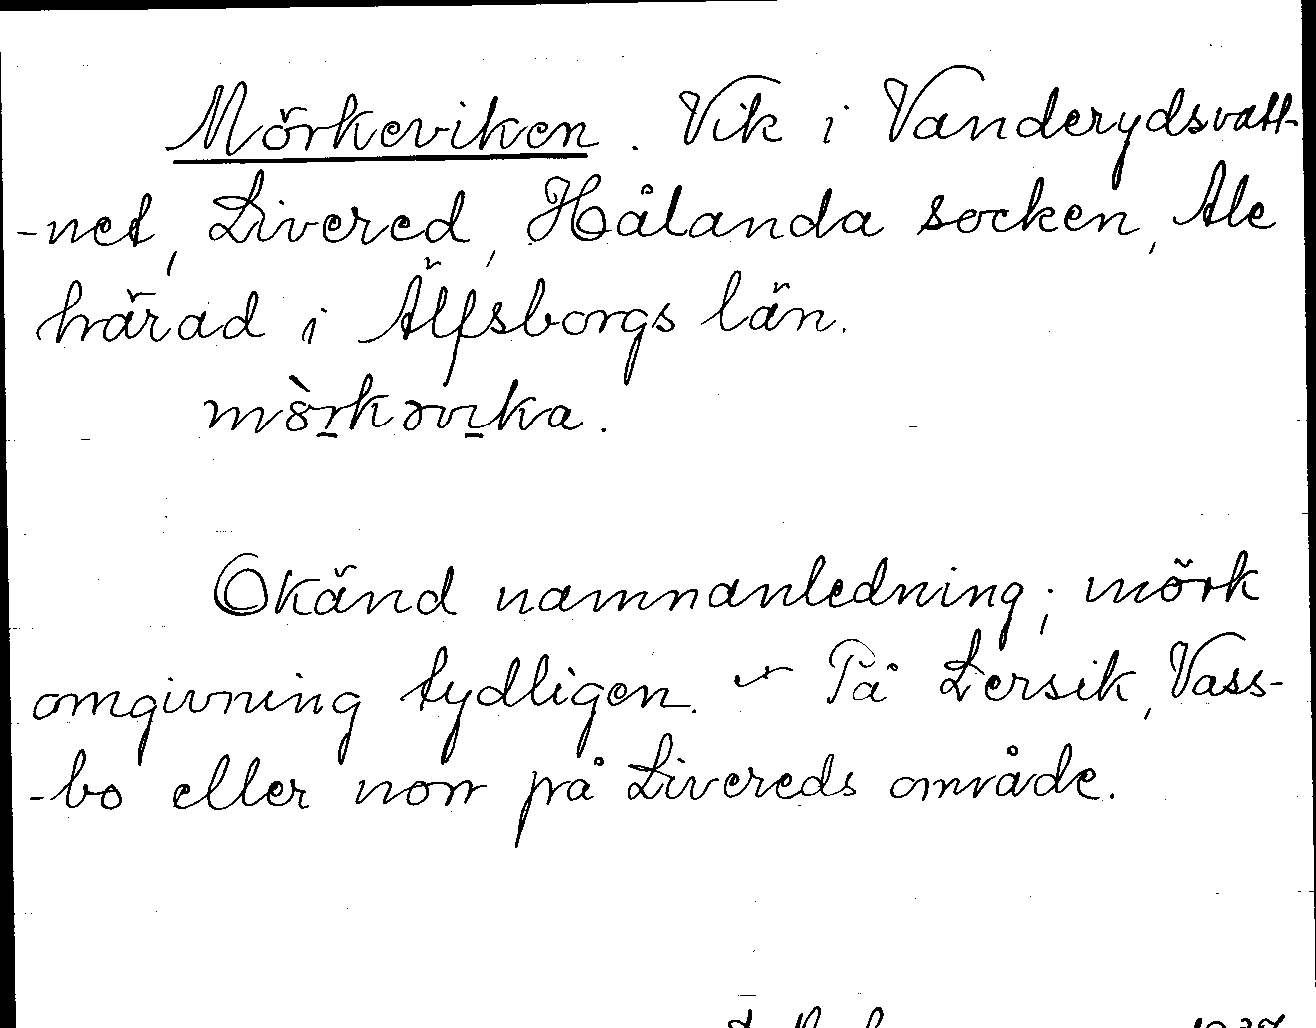 Mörkeviken. Vik i Vanderydsvatt-
-net, Livered, Hålanda socken, Ale
härad i Älfsborgs län.
mö̀rkəvɪka.
Okänd namnanledning; mörk
omgivning tydligen. På Lersik, Vass-
-bo eller norr på Livereds område.